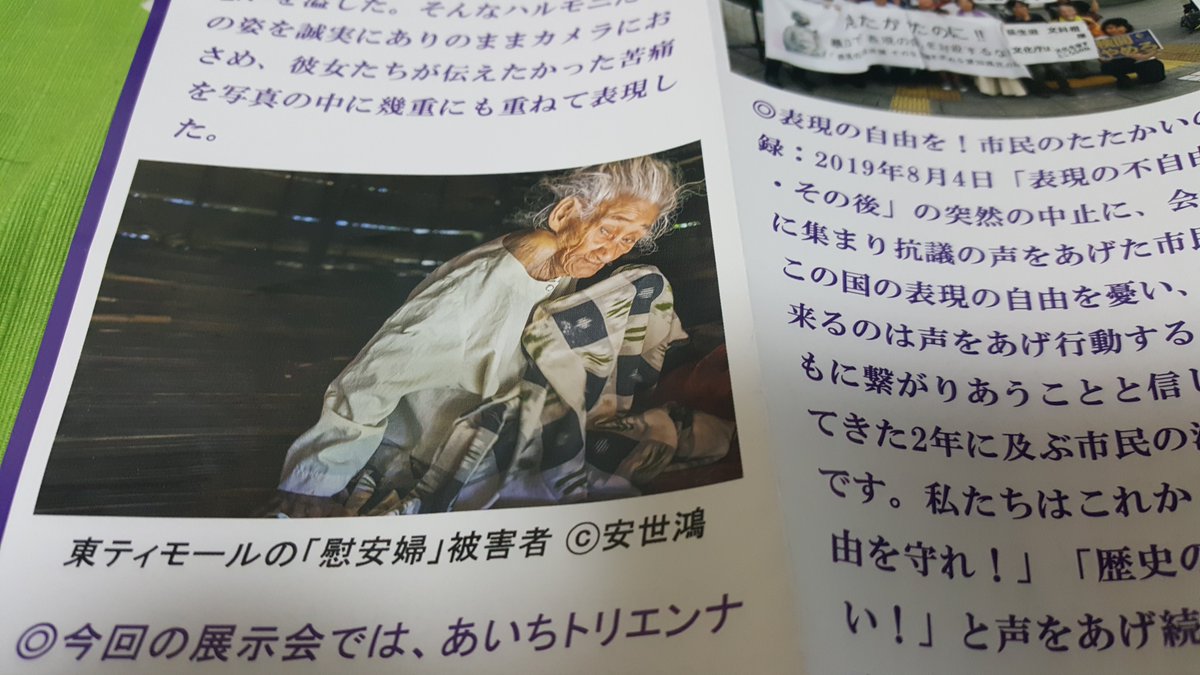 を溢した。そんなハルモニた
の姿を誠実にありのままカメラにお
さめ、彼女たちが伝えたかった苦痛
を写真の中に幾重にも重ねて表現し
た。
東ティモールの「慰安婦」被害者 ©安世鴻
◎今回の展示会では、あいちトリエンナ
たかたのに!!
◎表現の自由を！市民のたたかいの
録：2019年8月4日「表現の不自由
・その後」の突然の中止に、会
に集まり抗議の声をあげた市民
この国の表現の自由を憂い、
来るのは声をあげ行動する
もに繋がりあうことと信し
てきた2年に及ぶ市民の
です。私たちはこれか
由を守れ！」「歴史の
い！」と声をあげ続